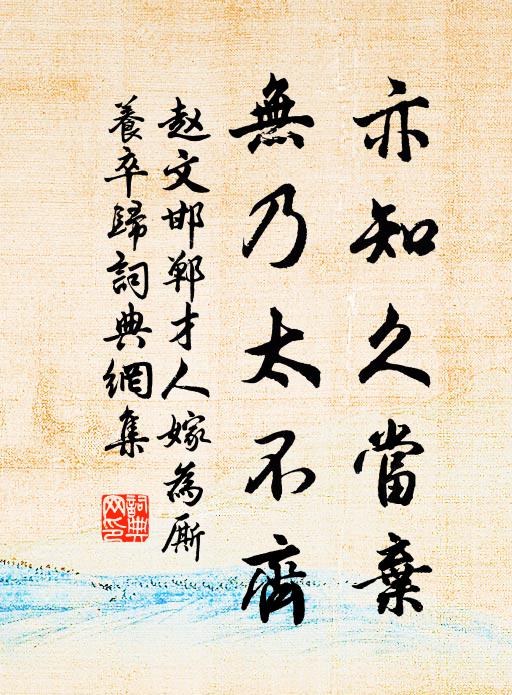 亦知久當棄
無乃太不齊
赵文邯鄲才人嫁為厮
養卒歸詞典網集
詞典
网印